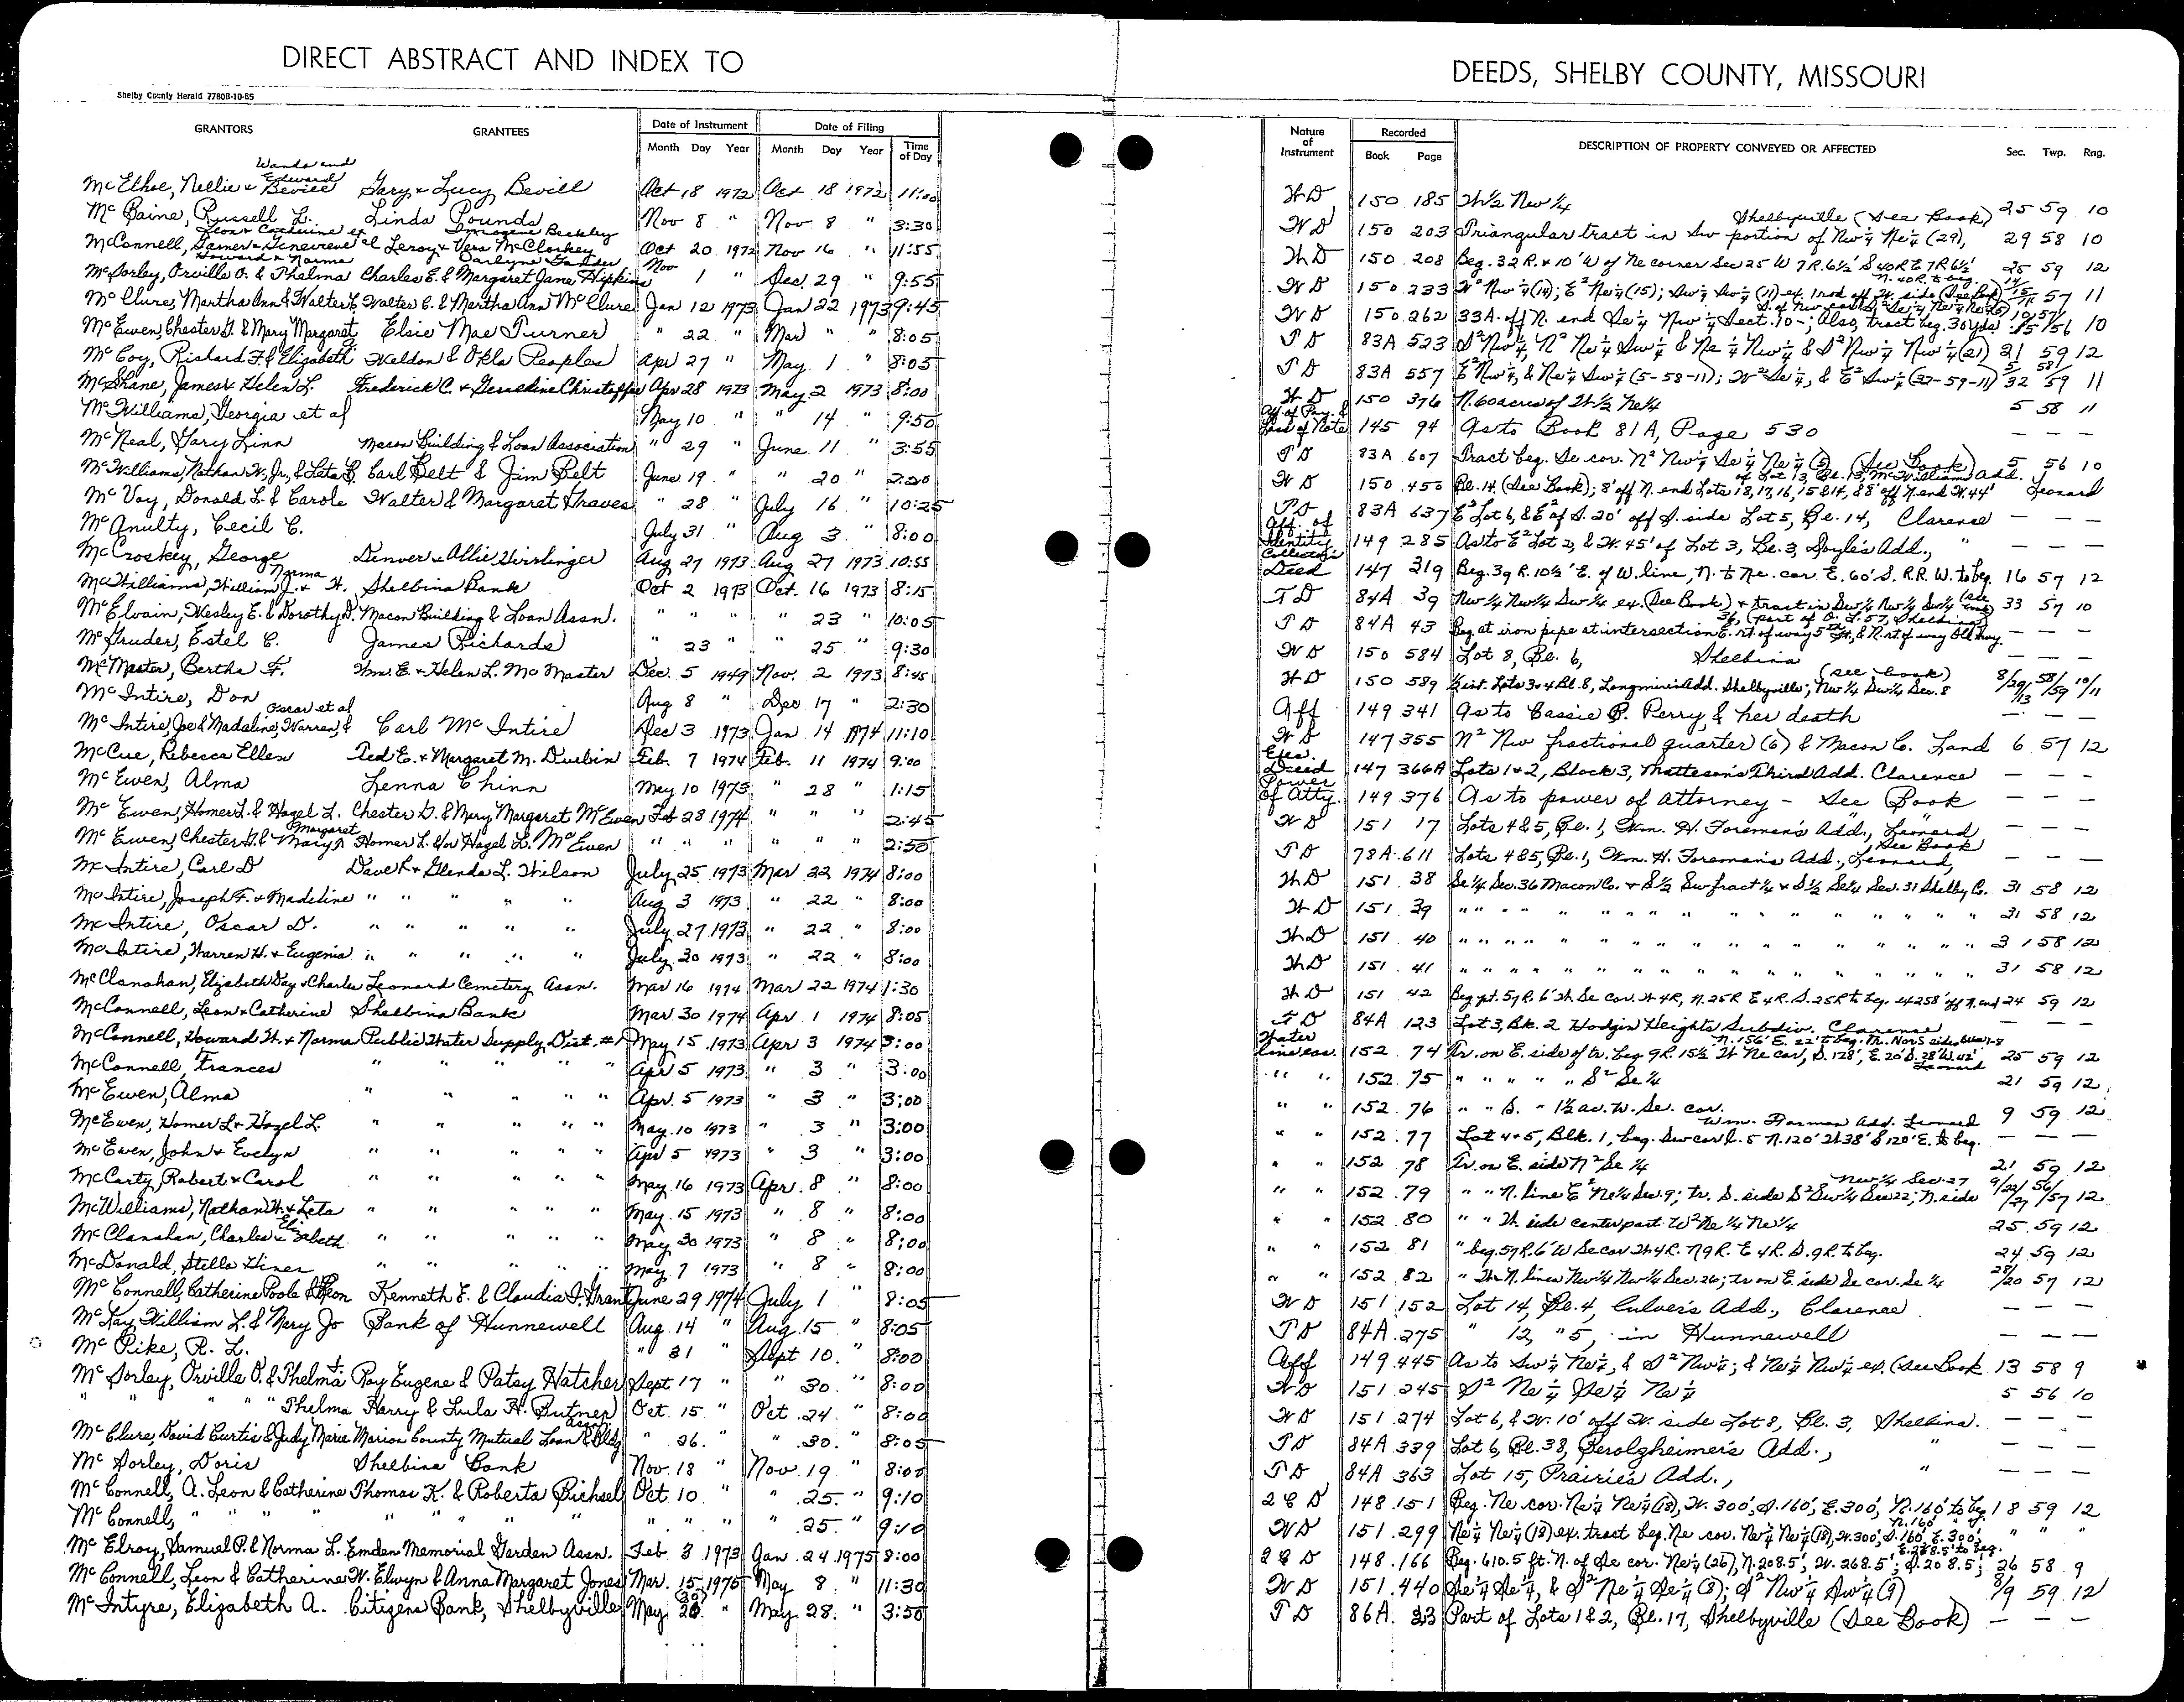 DIRECT ABSTRACT AND INDEX TO
DEEDS, SHELBY COUNTY, MISSOURI
Shelby County Herald 7780B-10-65
GRANTORS GRANTEES Date of Instrument Date of Filing
Month Day Year Month Day Year Time of Day
Nature of Instrument Recorded Book Page DESCRIPTION OF PROPERTY CONVEYED OR AFFECTED Sec. Twp. Rng.
McElhoe, Nellie & Wanda and Edward Bevill Gary & Lucy Bevill Oct 18 1972 Oct 18 1972 11:00 W D 150 185 W½ Nw¼ 25 59 10
McBaine, Russell L. Linda Pounds Nov 8 " Nov 8 " 3:30 W D 150 203 Triangular tract in Sw portion of Nw¼ Ne¼ (29), Shelbyville (See Book) 29 58 10
McConnell, Garner & Genevieve Leon & Catherine et al Howard & Norma Leroy & Vera McCloskey Imogene Beckley Oct 20 1972 Nov 16 " 11:55 W D 150 208 Beg. 32 R. & 10' W of Ne corner Sec 25 W 7R. 6½' S 40R E 7R 6½' N. 40R. to beg. 25 59 12
McSorley, Orville O. & Thelma Charles E. & Margaret Jane Hipkins Nov 1 " Dec. 29 " 9:55 W D 150 233 57 11
McClure, Martha Ann & Walter E. Walter E. & Martha Ann McClure Jan 12 1973 Jan 22 1973 9:45 W D 150 262 33 A. off N. end Se¼ Nw¼ Sect. 10-; Also, tract beg. 36 yds. 10
McEwen, Chester G. & Mary Margaret Elsie Mae Turner " 22 " Mar " " 8:05 T D 83A 523 S² Nw¼, N² Ne¼ Sw¼ & Ne¼ Nw¼ & S² Nw¼ Nw¼ (21) 21 59 12
McCoy, Richard F. & Elizabeth Weldon & Okla Peoples Apr 27 " May 1 " 8:03 T D 83A 557 E² Nw¼, & Ne¼ Sw¼ (5-58-11); W² Se¼, & E² Sw¼ (32-59-11) 5/32 58/59 11
McShane, James & Helen L. Frederick C. & Geraldine Christoffer Apr 28 1973 May 2 1973 8:00 W D 150 376 N. 60 acres of W½ Ne¼ 5 58 11
McWilliams, Georgia et al May 10 " " 14 " 9:50 Aff of Pay. & Loss of Note 145 94 As to Book 81A, Page 530 — — —
McNeal, Gary Linn Macon Building & Loan Association " 29 " June 11 " 3:55 T D 83A 607 Tract beg. Se cor. N² Nw¼ Se¼ Ne¼ (5) (See Book) 5 56 10
McWilliams, Nathan W., Jr., & Leta B. Carl Belt & Jim Belt June 19 " " 20 " 2:20 W D 150 450 Bl. 14 (See Book); 8' off N. end Lots 18, 17, 16, 15 & 14, & 8' off N. end W. 44' of Lot 13, Bl. 13, McWilliams Add. Leonard
McVay, Donald L. & Carole Walter & Margaret Graves " 28 " July 16 " 10:25 T D 83A 637 E² Lot 6, & E² of S. 20' off S. side Lot 5, Bl. 14, Clarence — — —
McAnulty, Cecil C. July 31 " Aug 3 " 8:00 Aff. of Identity 149 285 As to E² Lot 2, & W. 45' of Lot 3, Bl. 3, Doyle's Add., " — — —
McCroskey, George Denver & Allie Hirslinger Aug 27 1973 Aug 27 1973 10:55 Collector's Deed 147 219 Beg. 39 R. 10½' E. of W. line, N. to Ne. cor. E. 60' S. R.R. W. to beg. 16 57 12
McWilliams, William J. & Norma H. Shelbina Bank Oct 2 1973 Oct. 16 1973 8:15 T D 84A 39 Nw¼ Nw¼ Sw¼ ex. (See Book) & tract in Sw¼ Nw¼ Sw¼ (See Book) 33 57 10
McElvain, Wesley E. & Dorothy D. Macon Building & Loan Assn. " " " " 23 " 10:05 T D 84A 43 Beg. at iron pipe at intersection E. rt. of way 5th St., & N. rt of way Old Hwy. 36, (part of O. L. 57, Shelbina) — — —
McGruder, Estel C. James Richards " 23 " " 25 " 9:30 W D 150 584 Lot 8, Bl. 6, Shelbina — — —
McMaster, Bertha F. Wm. E. & Helen L. McMaster Dec. 5 1949 Nov. 2 1973 8:45 W D 150 589 ½ int. Lots 3 & 4 Bl. 8, Longmire's Add. Shelbyville; Nw¼ Sw¼ Sec. 8 (see book) 8/29/13 58/59 10/11
McIntire, Don Aug 8 " Dec 17 " 2:30 Aff 149 341 As to Cassie B. Perry, & her death — — —
McIntire, Joe & Madaline, Warren, & Oscar et al Carl McIntire Dec 3 1973 Jan 14 1974 11:10 W D 147 355 N² Nw fractional quarter (6) & Macon Co. Land 6 57 12
McCue, Rebecca Ellen Ted E. & Margaret M. Durbin Feb. 7 1974 Feb. 11 1974 9:00 Exec. Deed 147 366A Lots 1 & 2, Block 3, Matteson's Third Add. Clarence — — —
McEwen, Alma Lenna Chinn May 10 1973 " 28 " 1:15 Power of Atty. 149 376 As to power of attorney - See Book — — —
McEwen, Homer L. & Hazel L. Chester G. & Mary Margaret McEwen Feb 28 1974 " " " 2:45 W D 151 17 Lots 4 & 5, Bl. 1, Wm. H. Foreman's Add., Leonard — — —
McEwen, Chester G. & Mary Margaret Homer L. &/or Hazel L. McEwen " " " " " " 2:50 T D 78A 611 Lots 4 & 5, Bl. 1, Wm. H. Foreman's Add., Leonard, See Book — — —
McIntire, Carl D Dave L. & Glenda L. Wilson July 25 1973 Mar 22 1974 8:00 W D 151 38 Se¼ Sec. 36 Macon Co. & S½ Sw fract ¼ & S½ Se¼ Sec. 31 Shelby Co. 31 58 12
McIntire, Joseph F. & Madeline " " " " " Aug 3 1973 " 22 " 8:00 W D 151 39 " " " " " " " " " " 31 58 12
McIntire, Oscar D. " " " " " July 27 1973 " 22 " 8:00 W D 151 40 " " " " " " " " " " 31 58 12
McIntire, Warren H. & Eugenia " " " " " July 30 1973 " 22 " 8:00 W D 151 41 " " " " " " " " " " 31 58 12
McClanahan, Elizabeth Day & Charles Leonard Cemetery Assn. Mar 16 1974 Mar 22 1974 1:30 W D 151 42 Beg pt. 57 R. 6' W Se cor. W 4R, N. 25R E 4R. S. 25R to beg. ex 258' off N. end 24 59 12
McConnell, Leon & Catherine Shelbina Bank Mar 30 1974 Apr 1 1974 8:05 T D 84A 123 Lot 3, Bk. 2 Hodgin Heights Subdiv. Clarence — — —
McConnell, Howard W. & Norma Public Water Supply Dist. #1 May 15 1973 Apr 3 1974 3:00 Water line eas. 152 74 Tr. on E. side of tr. beg. 9R. 15½ W Ne cor, S. 128', E. 20' S. 38' W. 42' N. 156' E. 22' to beg. 25 59 12
McConnell, Frances " " " " " Apr 5 1973 " 3 " 3:00 " " 152 75 " " " " " S² Se¼ 21 59 12
McEwen, Alma " " " " " Apr. 5 1973 " 3 " 3:00 " " 152 76 " " S. " 1½ ac. W. Se. cor. 9 59 12
McEwen, Homer L & Hazel L " " " " " May. 10 1973 " 3 " 3:00 " " 152 77 Lot 4 & 5, Blk. 1, beg. Sw cor L. 5 N. 120' W 38' S 120' E. to beg. Wm. Forman Add. Leonard — — —
McEwen, John & Evelyn " " " " " Apr 5 1973 " 3 " 3:00 " " 152 78 Tr. on E. side N² Se¼ 21 59 12
McCarty, Robert & Carol " " " " " May 16 1973 Apr. 8 " 8:00 " " 152 79 " " N. line E² Ne¼ Sec. 9; tr. S. side S² Sw¼ Sec 22; N. side Nw¼ Sec. 27 9/22/27 56/57 12
McWilliams, Nathan W. & Leta " " " " " May. 15 1973 " 8 " 8:00 " " 152 80 " " W. side center part W² Ne¼ Ne¼ 25 59 12
McClanahan, Charles & Elizabeth " " " " " May 30 1973 " 8 " 8:00 " " 152 81 " beg. 57 R. 6' W Se cor W 4R. N 9R. E 4R. S. 9R. to beg. 24 59 12
McDonald, Stella Hiner " " " " " May. 7 1973 " 8 " 8:00 " " 152 82 " W. N. lines Nw¼ Nw¼ Sec. 26; tr on E. side Se cor. Se¼ /20 57 12
McConnell, Catherine Poole & Leon Kenneth E. & Claudia I. Grant June 29 1974 July 1 " 8:05 W D 151 152 Lot 14, Bl. 4, Culver's Add., Clarence — — —
McKay, William L. & Mary Jo Bank of Hunnewell Aug. 14 " Aug. 15 " 8:05 T D 84A 275 " 12, " 5, in Hunnewell — — —
McPike, R. L. " 31 " Sept. 10. " 8:00 Aff 149 445 As to Sw¼ Ne¼, & S² Nw¼; & Ne¼ Nw¼ ex. (See Book 13 58 9
McSorley, Orville O. & Thelma J. Roy Eugene & Patsy Hatcher Sept 17 " " 30. " 8:00 W D 151 245 S² Ne¼ Se¼ Ne¼ 5 56 10
" " " " Thelma Harry & Lula H. Butner Oct. 15 " Oct. 24. " 8:00 W D 151 274 Lot 6, & W. 10' off W. side Lot 8, Bl. 3, Shelbina. — — —
McClure, David Curtis & Judy Marie Marion County Mutual Loan & Bldg Assn. " 26. " " 30. " 8:05 T D 84A 339 Lot 6, Bl. 38, Gerolzheimer's Add., " — — —
McSorley, Doris Shelbina Bank Nov. 18 " Nov. 19 " 8:00 T D 84A 363 Lot 15, Prairie's Add., " — — —
McConnell, A. Leon & Catherine Thomas K. & Roberta Bichsel Oct. 10. " " 25. " 9:10 Q C D 148 151 Beg. Ne cor. Ne¼ Ne¼ (18), W. 300', S. 160', E. 300', N. 160' to beg. 18 59 12
McConnell, " " " " " " " " " " 25. " 9:10 W D 151 299 Ne¼ Ne¼ (18) ex. tract beg. Ne cor. Ne¼ Ne¼ (18), W. 300', S. 160', E. 300', N. 160' " " " "
McElroy, Samuel P. & Norma L. Emden Memorial Garden Assn. Feb. 3 1973 Jan. 24 1975 8:00 Q C D 148 166 Beg. 610.5 ft. N. of Se cor. Ne¼ (26), N. 208.5', W. 268.5'; S. 208.5'; E. 268.5' to beg. 26 58 9
McConnell, Leon & Catherine W. Elwyn & Anna Margaret Jones Mar. 15, 1975 May 8. " 11:30 W D 151 440 Se¼ Se¼, & S² Ne¼ Se¼ (8); S² Nw¼ Sw¼ (9) 8/9 59 12
McIntyre, Elizabeth A. Citizens Bank, Shelbyville May. " May. 28. " 3:50 T D 86A. 23 Part of Lots 1 & 2, Bl. 17, Shelbyville (See Book) — — —